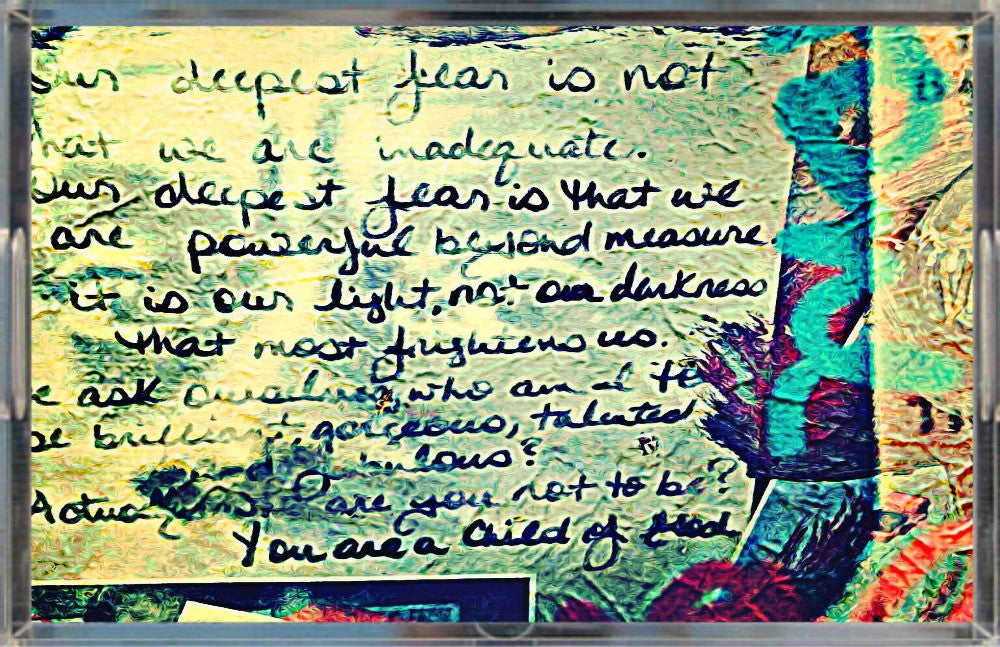 Our deepest fear is not
hat we are inadequate.
Our deepest fear is that we
are powerful beyond measure.
it is our light, not our darkness
that most frightens us.
e ask ourselves, who am I to
be brilliant, gorgeous, talented
and fabulous?
Actually who are you not to be?
You are a Child of God